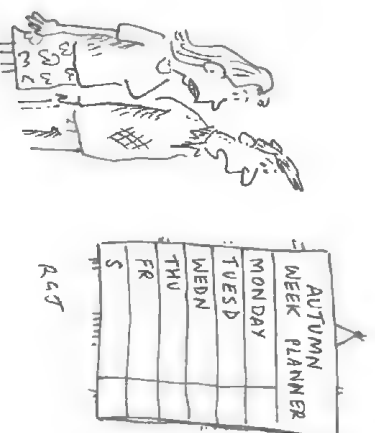 AUTUMN
WEEK PLANNER
MONDAY
TUESD
WEDN
THU
FR
S
RGJ